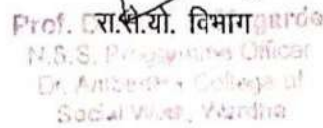 रा.से.यो. विभाग
Prof.
N.S.S. Programme Officer
Dr. Ambedkar College of
Social Work, Wardha